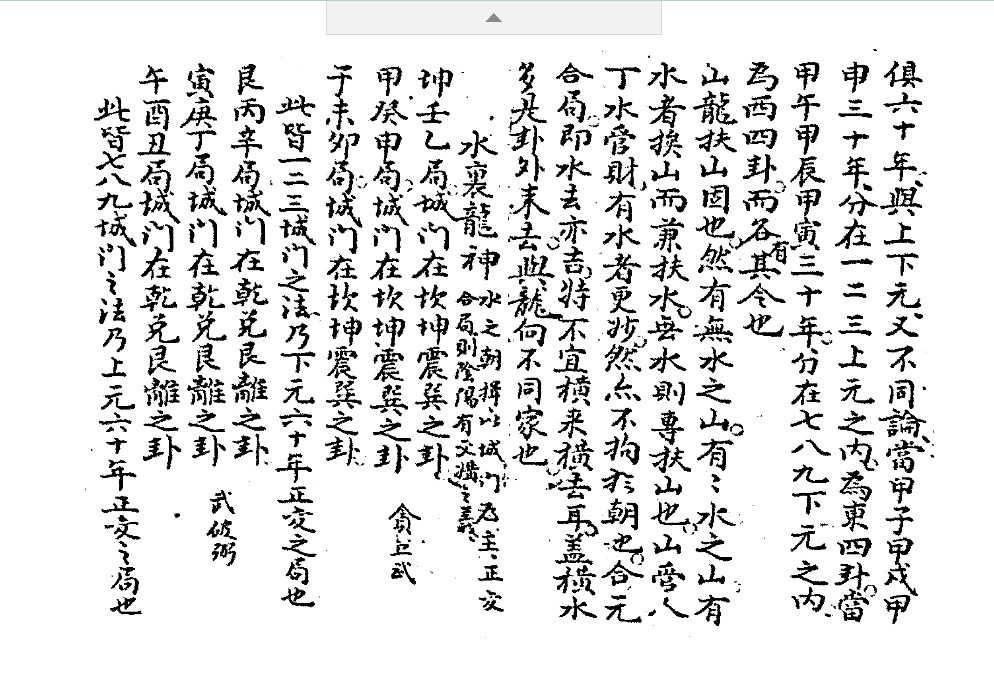 俱六十年與上下元又不同論當甲子甲戌甲
申三十年分在一二三上元之內為東四卦當
甲午甲辰甲寅三十年分在七八九下元之內
為西四卦而各有其令也
山龍扶山固也然有無水之山有〻水之山有
水者換山而兼扶水無水則專扶山也山管人
丁水管財有水者更妙然亦不拘於朝也合元
合局即水去亦吉特不宜橫來橫去耳蓋橫水
多是卦外来去與龍向不同家也
水裏龍神
水之朝揖以城門為主〻正交
合局則陰陽有交媾之義
坤壬乙局城門在坎坤震巽之卦
甲癸申局城門在坎坤震巽之卦
貪巨武
子未卯局城門在坎坤震巽之卦
此皆一二三城門之法乃下元六十年正交之局也
艮丙辛局城門在乾兌艮離之卦
寅庚丁局城門在乾兌艮離之卦
武破弼
午酉丑局城門在乾兌艮離之卦
此皆七八九城門之法乃上元六十年正交之局也